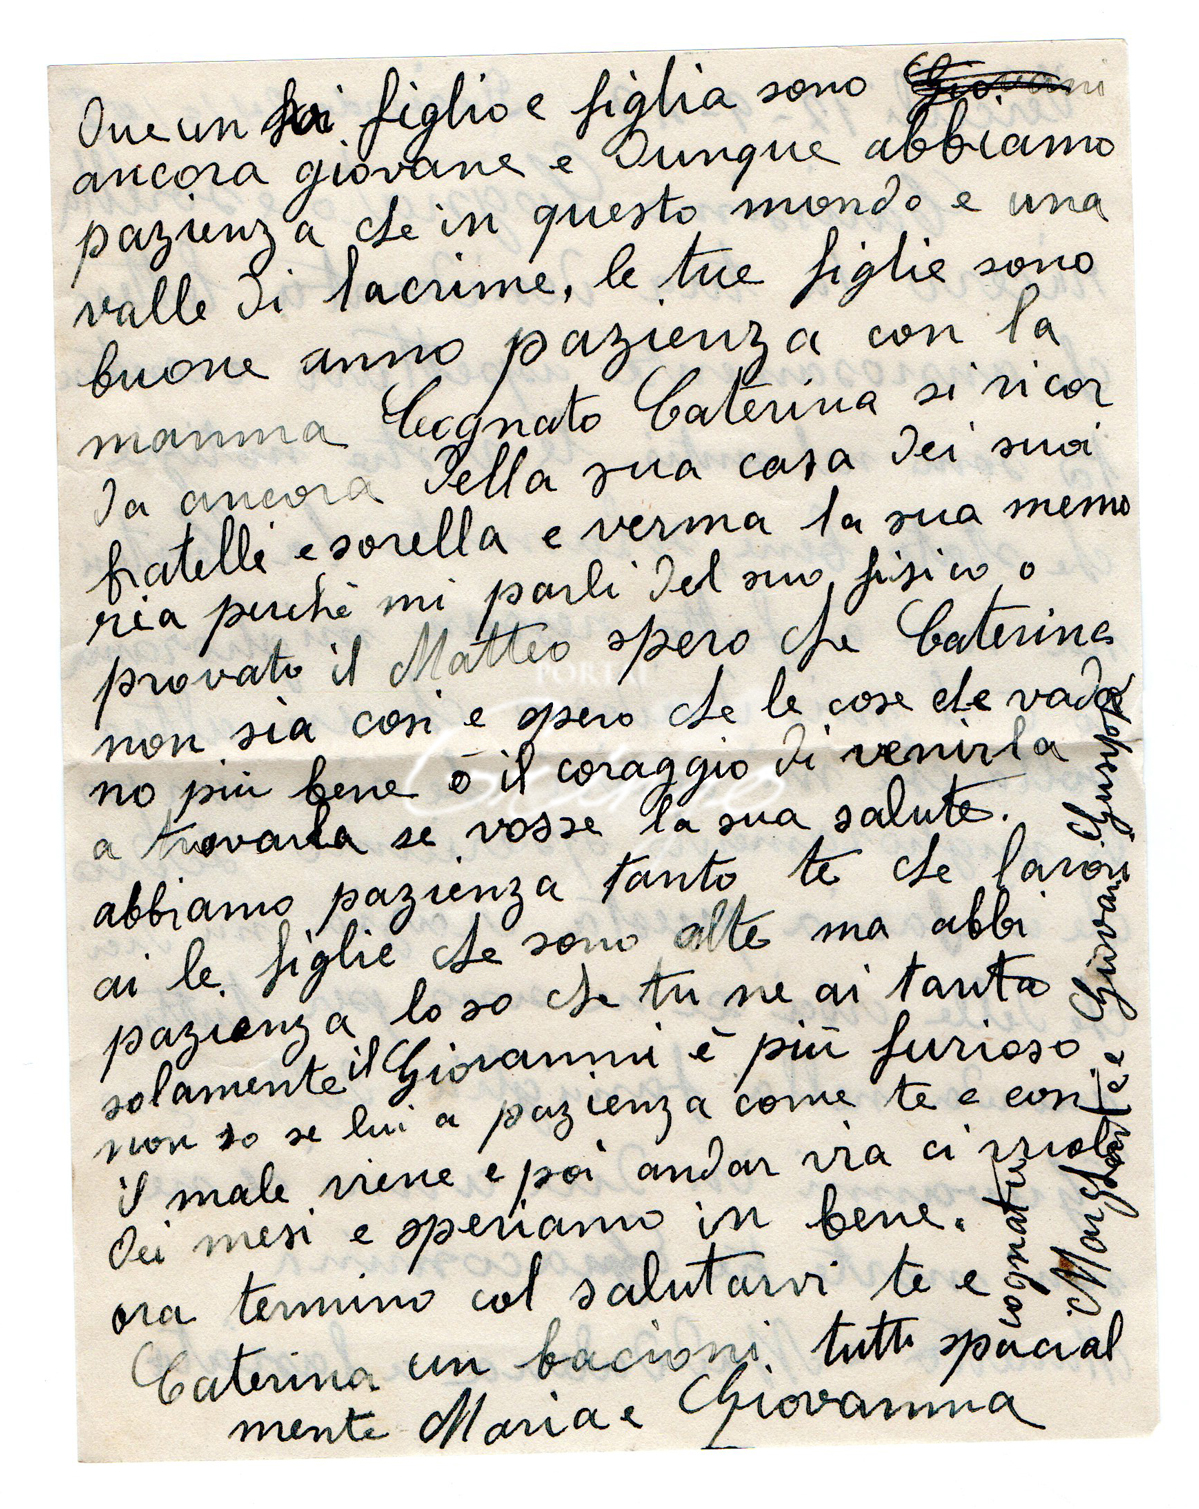 Due un figlio e figlia sono Giovani
ancora giovane e dunque abbiamo
pazienza che in questo mondo e una
valle di lacrime, le tue figlie sono
buone anno pazienza con la
mamma Cognato Caterina si ricor
da ancora della sua casa dei suoi
fratelli e sorella e verma la sua memo
ria perchè mi parli del suo fisico o
provato il Matteo spero che Caterina
non sia cosi e spero che le cose che vada
no più bene ò il coraggio di venirla
a trovarla se vosse la sua salute.
abbiamo pazienza tanto te che lavori
ai le figlie che sono alte ma abbi
pazienza lo so che tu ne ai tanta
solamente il Giovanni è più furioso
non so se lui a pazienza come te e con
il male viene e poi andar via ci vuol
dei mesi e speriamo in bene.
ora termino col salutarvi te e
Caterina un bacioni tutti spacial
mente Maria e Giovanna
cognata
Margherita e Giovani Giuseppe
PORTAL